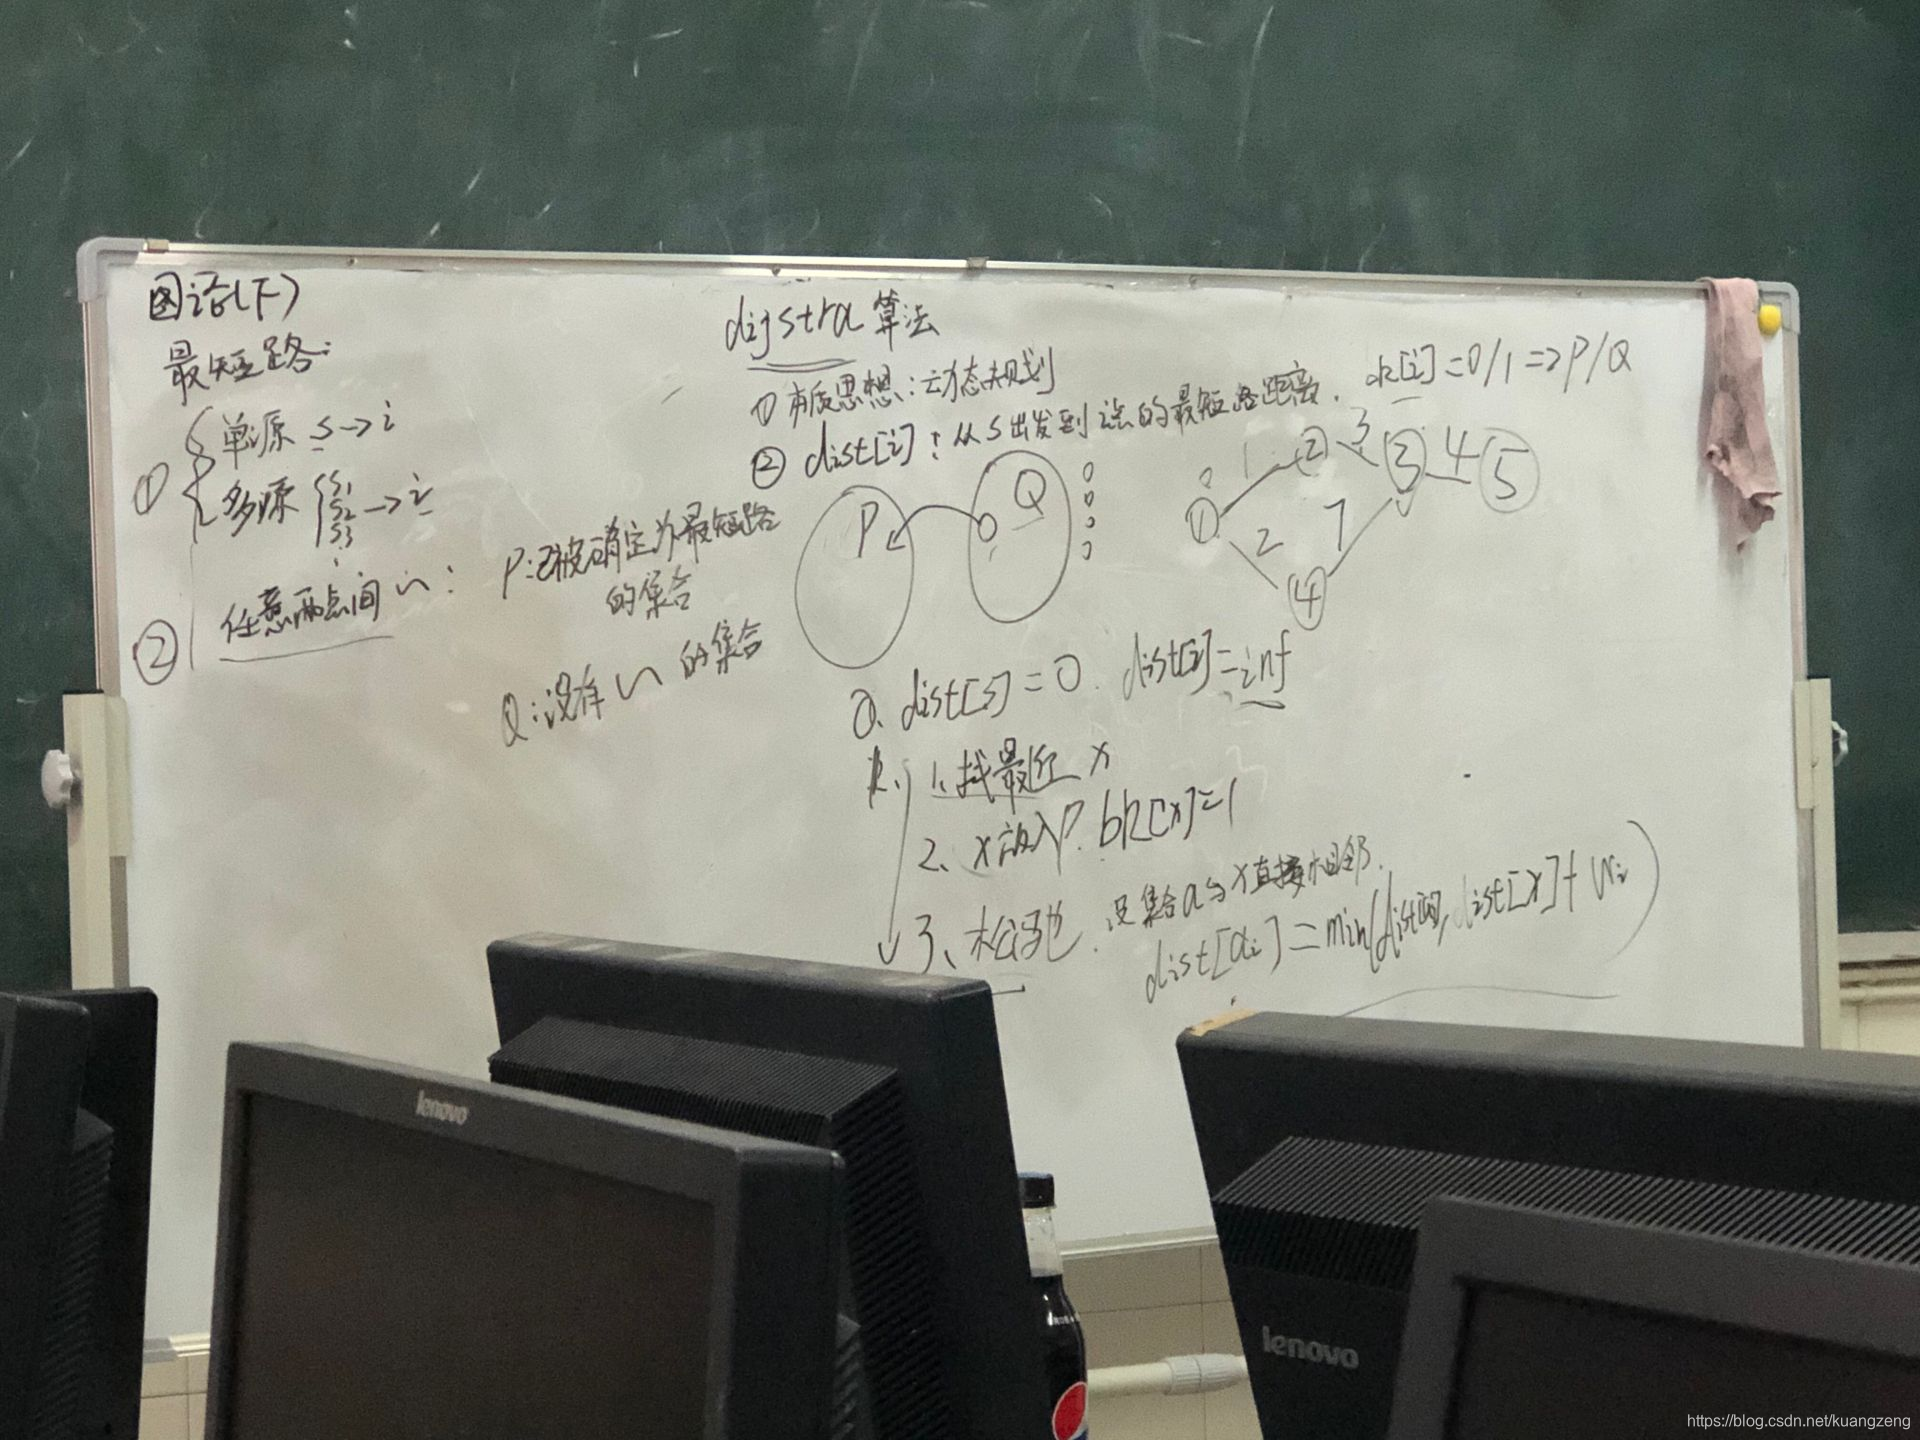 图论(下)
最短路:
① 单源 s→i
多源 s1 s2 s3 →i
② 任意两点间 〃:
dijstra 算法
① 本质思想:动态规划
② dist[i]:从s出发到 的最短路距离.
bk[i]=0/1=>P/Q
P:已被确定为最短路
的集合
Q:没有 〃 的集合
P
Q
0
0
1 2 3 3 4 5
1 2 7 4
dist[s]=0. dist[i]=inf
1、找最近 x
2、x放入P. bk[x]=1
3、松弛. 设集合a与x直接相邻.
dist[ai]=min(dist[ai], dist[x]+wi
lenovo
lenovo
https://blog.csdn.net/kuangzeng